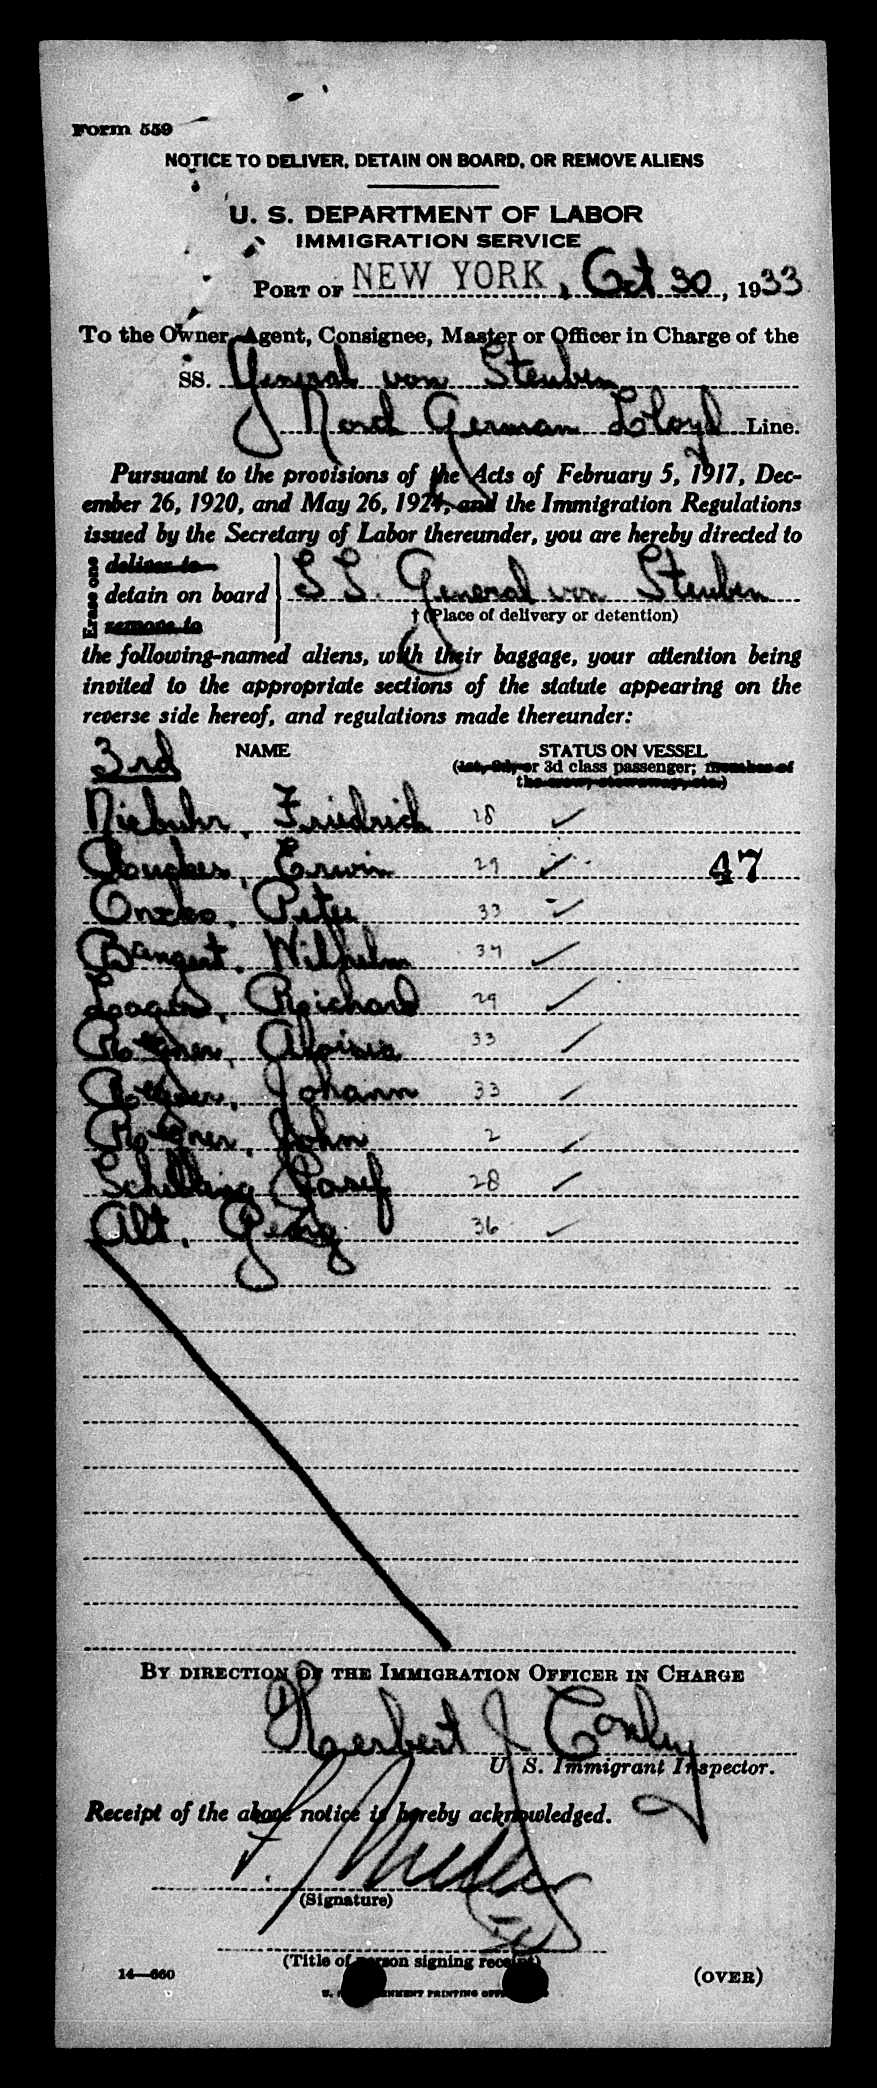 Form 559
NOTICE TO DELIVER, DETAIN ON BOARD, OR REMOVE ALIENS
U. S. DEPARTMENT OF LABOR
IMMIGRATION SERVICE
PORT OF NEW YORK, Oct 30, 1933
To the Owner, Agent, Consignee, Master or Officer in Charge of the
SS. General von Steuben
Nord German Lloyd Line.
Pursuant to the provisions of the Acts of February 5, 1917, Dec-
ember 26, 1920, and May 26, 1924, and the Immigration Regulations
issued by the Secretary of Labor thereunder, you are hereby directed to
Erase one
deliver to
detain on board } SS. General von Steuben
remove to
† (Place of delivery or detention)
the following-named aliens, with their baggage, your attention being
invited to the appropriate sections of the statute appearing on the
reverse side hereof, and regulations made thereunder:
3rd NAME STATUS ON VESSEL
(1st, 2d, or 3d class passenger; member of
the crew, stowaway, etc.)
Niebuhr, Friedrich 28 ✓
Erwin 29 ✓ 47
Peter 33 ✓
Bangert, Wilhelm 37 ✓
Richard 29 ✓
Aloisia 33 ✓
Johann 33 ✓
John 2 ✓
Schilling Josef 28 ✓
Alt, Georg 36 ✓
BY DIRECTION OF THE IMMIGRATION OFFICER IN CHARGE
Herbert J Conley
U. S. Immigrant Inspector.
Receipt of the above notice is hereby acknowledged.
(Signature)
(Title of person signing receipt)
14—660
(OVER)